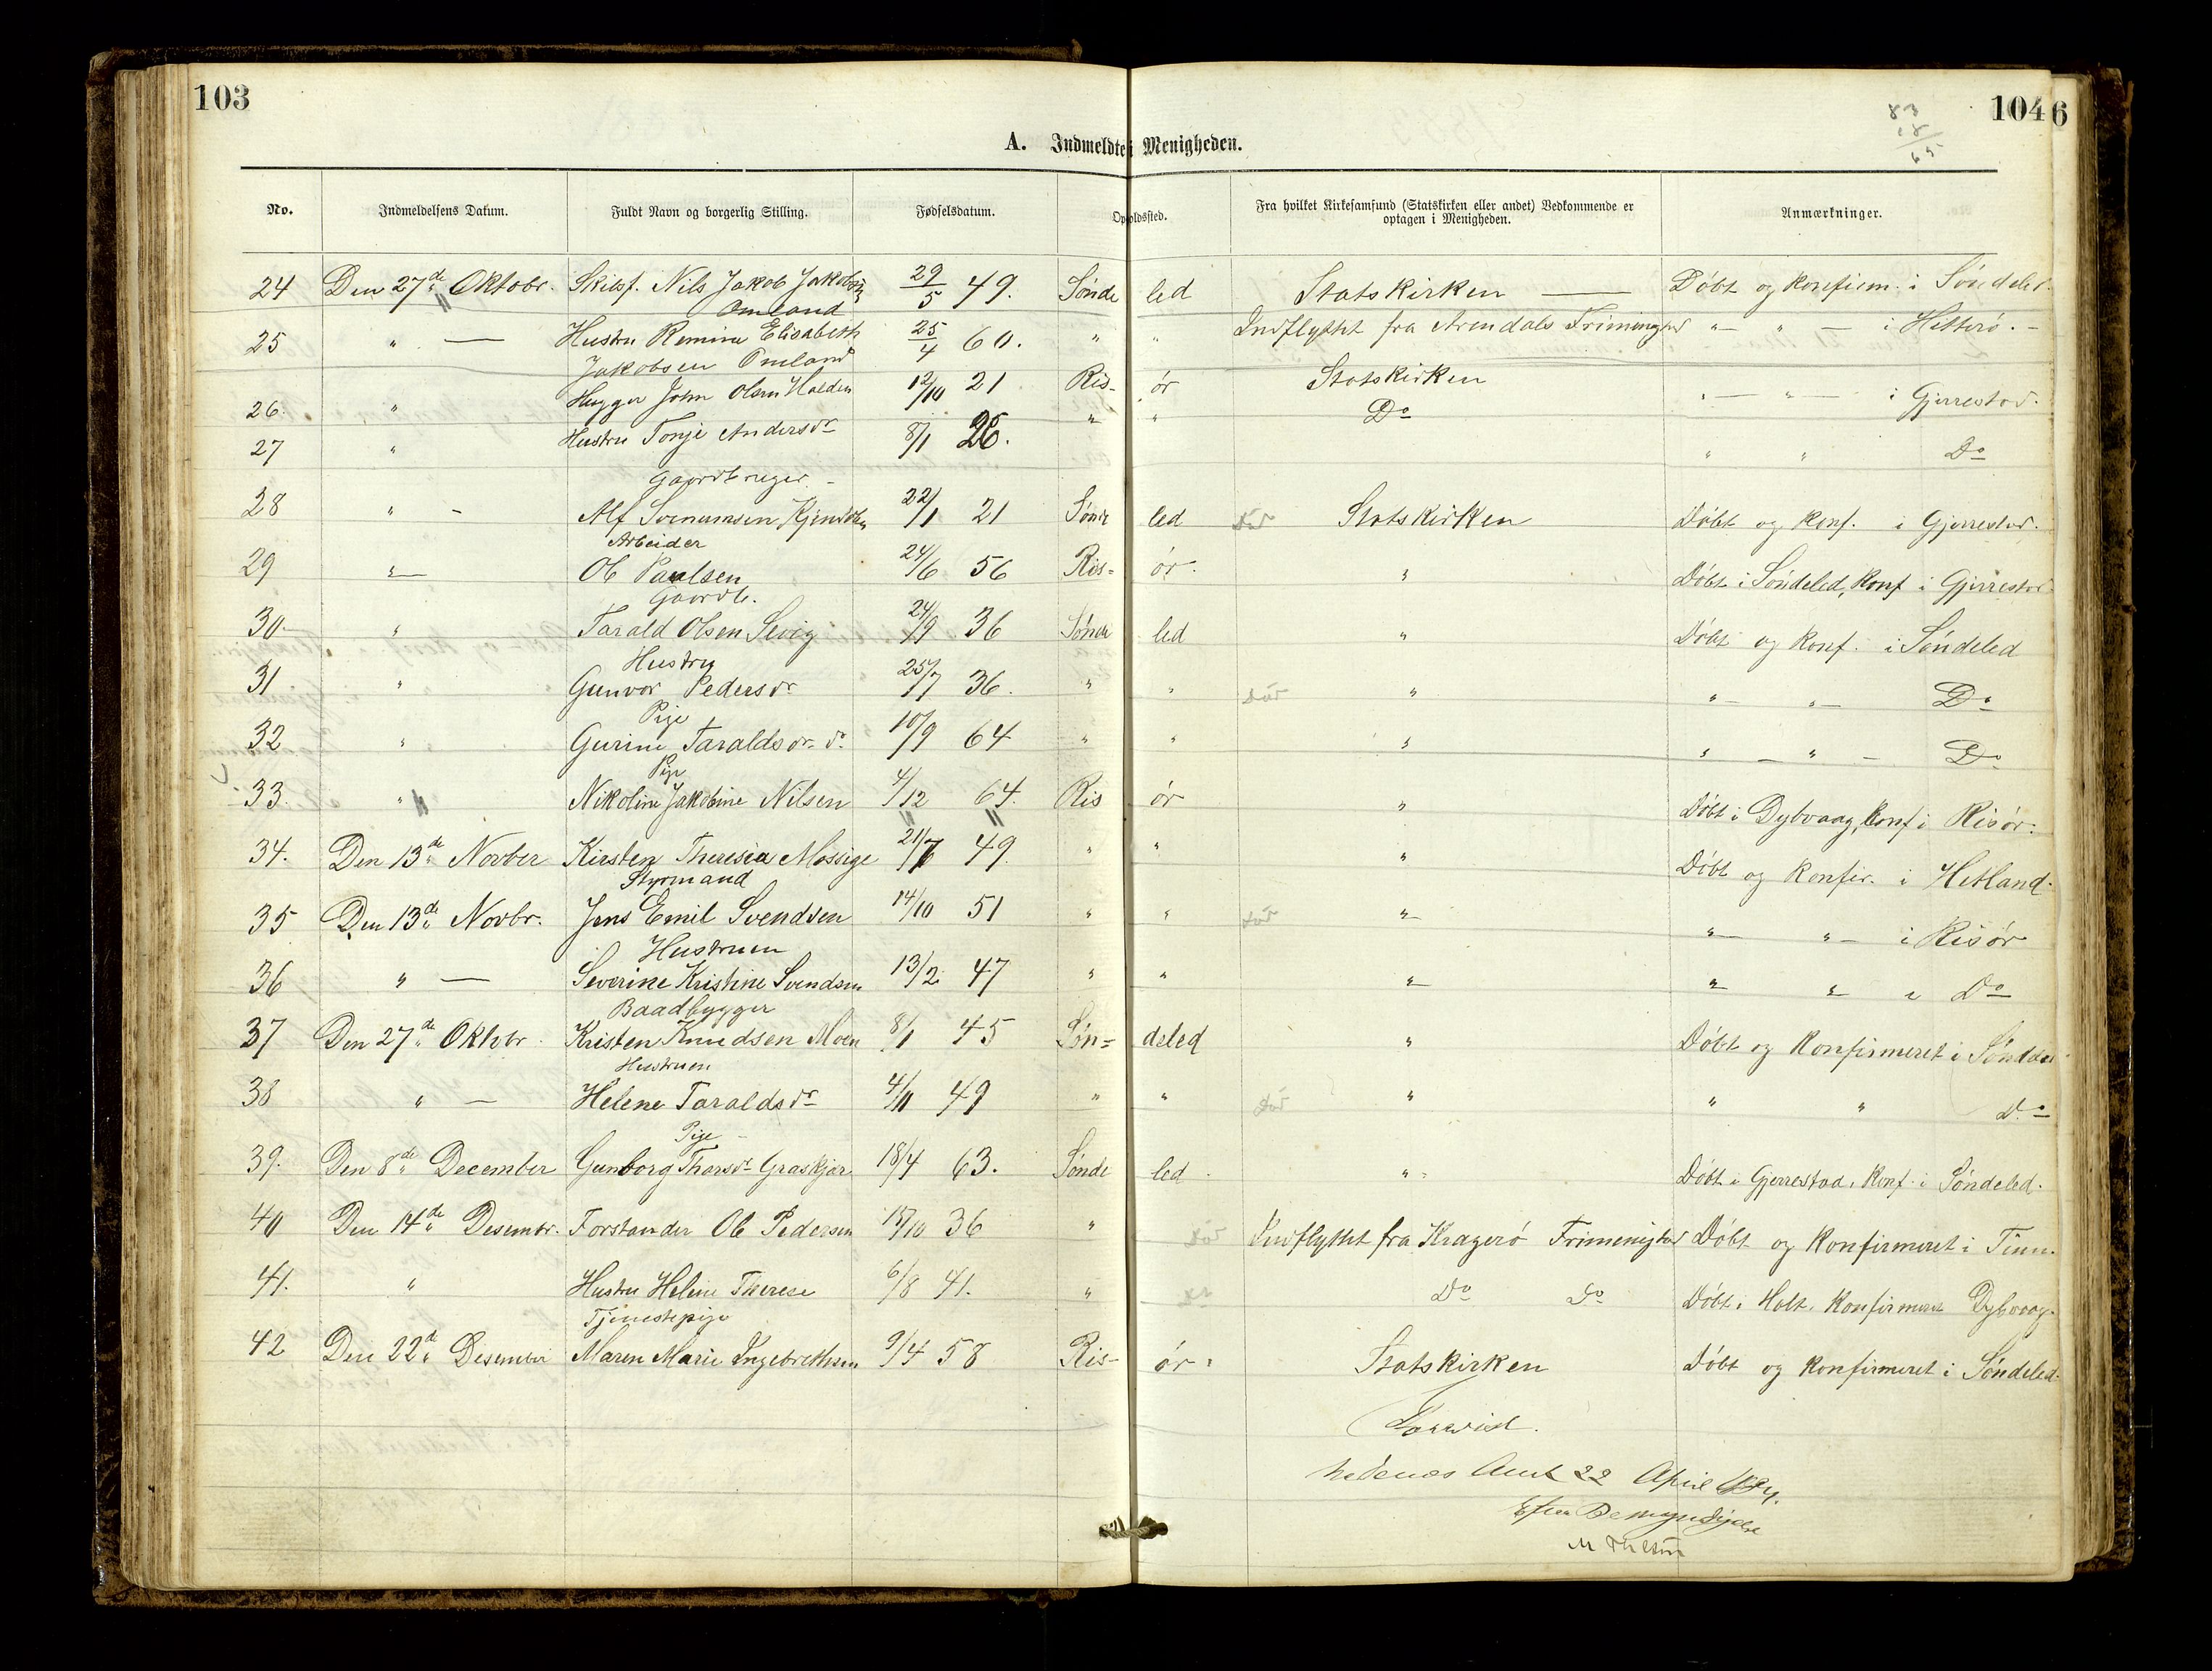 103
1046
83
18
65
A. Indmeldte i Menigheden.
No. Indmeldelsens Datum. Fuldt Navn og borgerlig Stilling. Fødselsdatum. Opholdssted. Fra hvilket Kirkesamfund (Statskirken eller andet) Vedkommende er optagen i Menigheden. Anmærkninger.
24 Den 27de Oktobr. Skibsf. Nils Jakob Jakobsen 29/5 49. Sønde led Statskirken — Døbt og konfirm. i Søndeled.
Omland
25 " — Hustru Remine Elisabeth 25/4 60. " " Indflyttet fra Arendals Frimenighed "— " — i Hitterø. -
Jakobsen Omland
26. " Hugger John Olsen Halden 12/10 21 Ris- ør Statskirken "— "— i Gjerrestad.
27 " Hustru Tonje Andersdr 8/1 26. " " Do " " Do
Gaardbruger -
28 " - Alf Svenumsen 22/1 21 Sønde led Død Statskirken Døbt og Konf. i Gjerrestad.
Arbeider
29 "— Ole Paulsen 24/6 56 Ris- ør. " Døbt i Søndeled, Konf i Gjerrestad
Gaardb.
30 " Tarald Olsen Sevig 24/9 36 Sønde led " Døbt og Konf. i Søndeled
Hustru
31 " Gunvor Pedersdr 25/7 36. " " Død " "— "— Do
Pige
32 " Gurine Taraldsdr. do 10/9 64 " " " " — " — Do
Pige
33. " Nikoline Jakobine Nilsen 4/12 64. Ris ør " Døbt i Dybvaag, Konf i Risør.
34. Den 13de Novber Kirsten Theresia Mossige 21/7 49 " " " Døbt og Konfir. i Hetland.
Styrmand
35 Den 13de Novbr. Jens Emil Svendsen 14/10 51 " " Død "— "— "— i Risør
Hustruen
36 " — Severine Kristine Svendsen 13/2 47 " " "— "— "— i Do
Baadbygger
37 Den 27de Oktobr. Kristen Knudsen Moen 8/1 45 Søn= deled " Døbt og Konfirmeret i Søndeled
Hustruen
38 " — Helene Taraldsdr 4/11 49 " " Død " " " Do
Pige -
39. Den 8de December Gunborg Thorsdr Graskjær 18/4 63. Sønde led. " Døbt i Gjerrestad, Konf. i Søndeled.
40 Den 14de Desembr. Forstander Ole Pedersen 15/10 36 " Død Indflyttet fra Kragerø Frimenighed Døbt og Konfirmeret i Tinn.
41. " Hustru Helene Therese 6/8 41. " Do Do Døbt i Holt, Konfirmeret Dybvaag.
Tjenestepige
42 Den 22de Desember Maren Marie Ingebrethsen 9/4 58 Ris- ør. Statskirken Døbt og Konfirmeret i Søndeled.
Forevist.
Nedenes Amt 22 April 1884.
Efter Bemyndigelse